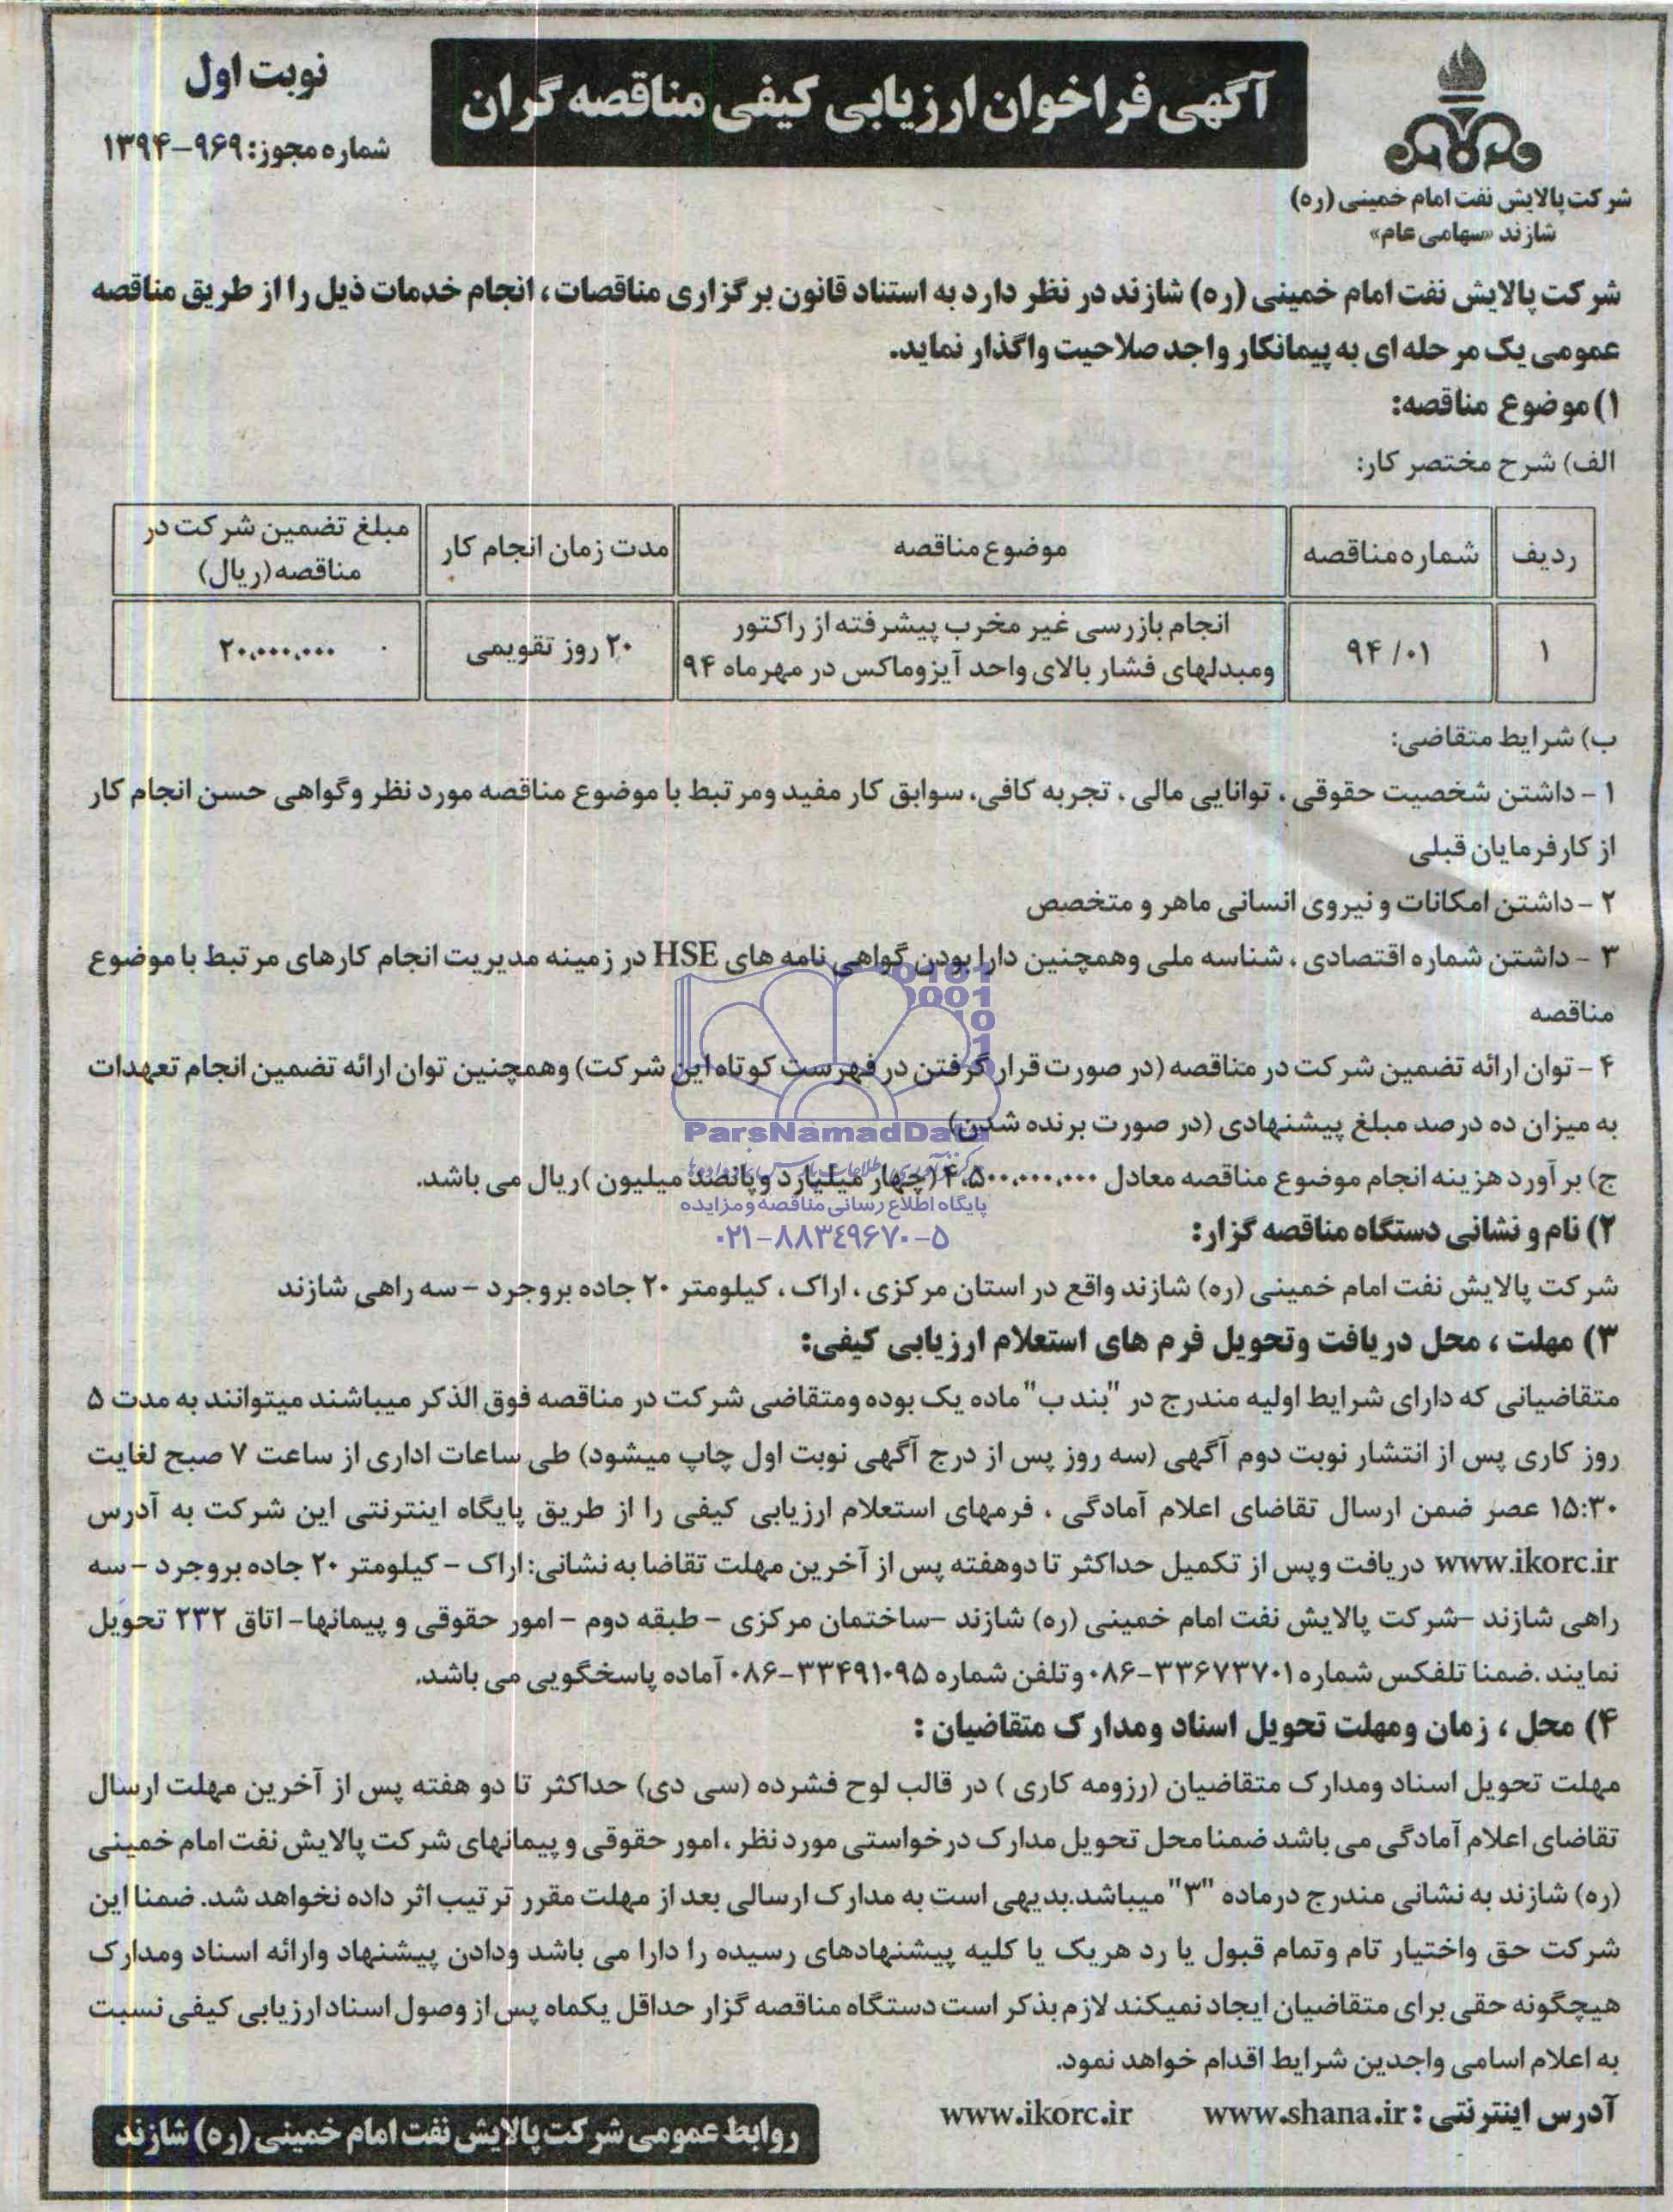 آگهی فراخوان ارزیابی کیفی مناقصه گران
نوبت اول
شماره مجوز: ۹۶۹-۱۳۹۴
شرکت پالایش نفت امام خمینی (ره)
شازند «سهامی عام»
شرکت پالایش نفت امام خمینی (ره) شازند در نظر دارد به استناد قانون برگزاری مناقصات، انجام خدمات ذیل را از طریق مناقصه
عمومی یک مرحله ای به پیمانکار واجد صلاحیت واگذار نماید.
۱) موضوع مناقصه:
الف) شرح مختصر کار:
ردیف
شماره مناقصه
موضوع مناقصه
مدت زمان انجام کار
مبلغ تضمین شرکت در
مناقصه (ریال)
۱
۹۴/۰۱
انجام بازرسی غیر مخرب پیشرفته از راکتور
ومبدلهای فشار بالای واحد آیزوماکس در مهرماه ۹۴
۲۰ روز تقویمی
۲۰،۰۰۰،۰۰۰
ب) شرایط متقاضی:
۱ - داشتن شخصیت حقوقی ، توانایی مالی ، تجربه کافی، سوابق کار مفید ومرتبط با موضوع مناقصه مورد نظر وگواهی حسن انجام کار
از کارفرمایان قبلی
۲ - داشتن امکانات و نیروی انسانی ماهر و متخصص
۳ - داشتن شماره اقتصادی ، شناسه ملی وهمچنین دارا بودن گواهی نامه های HSE در زمینه مدیریت انجام کارهای مرتبط با موضوع
مناقصه
۴ - توان ارائه تضمین شرکت در مناقصه (در صورت قرار گرفتن در فهرست کوتاه این شرکت) وهمچنین توان ارائه تضمین انجام تعهدات
به میزان ده درصد مبلغ پیشنهادی (در صورت برنده شدن)
ج) برآورد هزینه انجام موضوع مناقصه معادل ۴،۵۰۰،۰۰۰،۰۰۰ (چهار میلیارد وپانصد میلیون )ریال می باشد.
ParsNamadData
پایگاه اطلاع رسانی مناقصه و مزایده
۰۲۱-۸۸۳۴۹۶۷۰-۵
۲) نام و نشانی دستگاه مناقصه گزار:
شرکت پالایش نفت امام خمینی (ره) شازند واقع در استان مرکزی ، اراک ، کیلومتر ۲۰ جاده بروجرد - سه راهی شازند
۳) مهلت ، محل دریافت وتحویل فرم های استعلام ارزیابی کیفی:
متقاضیانی که دارای شرایط اولیه مندرج در "بند ب" ماده یک بوده ومتقاضی شرکت در مناقصه فوق الذکر میباشند میتوانند به مدت ۵
روز کاری پس از انتشار نوبت دوم آگهی (سه روز پس از درج آگهی نوبت اول چاپ میشود) طی ساعات اداری از ساعت ۷ صبح لغایت
۱۵:۳۰ عصر ضمن ارسال تقاضای اعلام آمادگی ، فرمهای استعلام ارزیابی کیفی را از طریق پایگاه اینترنتی این شرکت به آدرس
www.ikorc.ir دریافت وپس از تکمیل حداکثر تا دوهفته پس از آخرین مهلت تقاضا به نشانی: اراک - کیلومتر ۲۰ جاده بروجرد - سه
راهی شازند -شرکت پالایش نفت امام خمینی (ره) شازند -ساختمان مرکزی - طبقه دوم - امور حقوقی و پیمانها- اتاق ۲۳۲ تحویل
نمایند .ضمنا تلفکس شماره ۳۳۶۷۳۷۰۱-۰۸۶ و تلفن شماره ۳۳۴۹۱۰۹۵-۰۸۶ آماده پاسخگویی می باشد.
۴) محل ، زمان ومهلت تحویل اسناد ومدارک متقاضیان :
مهلت تحویل اسناد ومدارک متقاضیان (رزومه کاری ) در قالب لوح فشرده (سی دی) حداکثر تا دو هفته پس از آخرین مهلت ارسال
تقاضای اعلام آمادگی می باشد ضمنا محل تحویل مدارک درخواستی مورد نظر ، امور حقوقی و پیمانهای شرکت پالایش نفت امام خمینی
(ره) شازند به نشانی مندرج درماده "۳" میباشد.بدیهی است به مدارک ارسالی بعد از مهلت مقرر ترتیب اثر داده نخواهد شد. ضمنا این
شرکت حق واختیار تام وتمام قبول یا رد هریک یا کلیه پیشنهادهای رسیده را دارا می باشد ودادن پیشنهاد وارائه اسناد ومدارک
هیچگونه حقی برای متقاضیان ایجاد نمیکند لازم بذکر است دستگاه مناقصه گزار حداقل یکماه پس از وصول اسناد ارزیابی کیفی نسبت
به اعلام اسامی واجدین شرایط اقدام خواهد نمود.
آدرس اینترنتی : www.shana.ir www.ikorc.ir
روابط عمومی شرکت پالایش نفت امام خمینی (ره) شازند